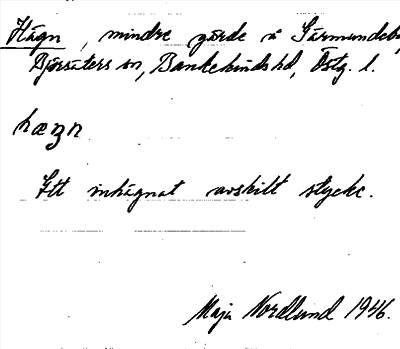 Hägn, mindre gärde å Särmundeby,
Björsäters sn, Bankekinds hd, Östg. l.
hægn
Ett inhägnat avskilt stycke.
Maja Nordlund 1946.